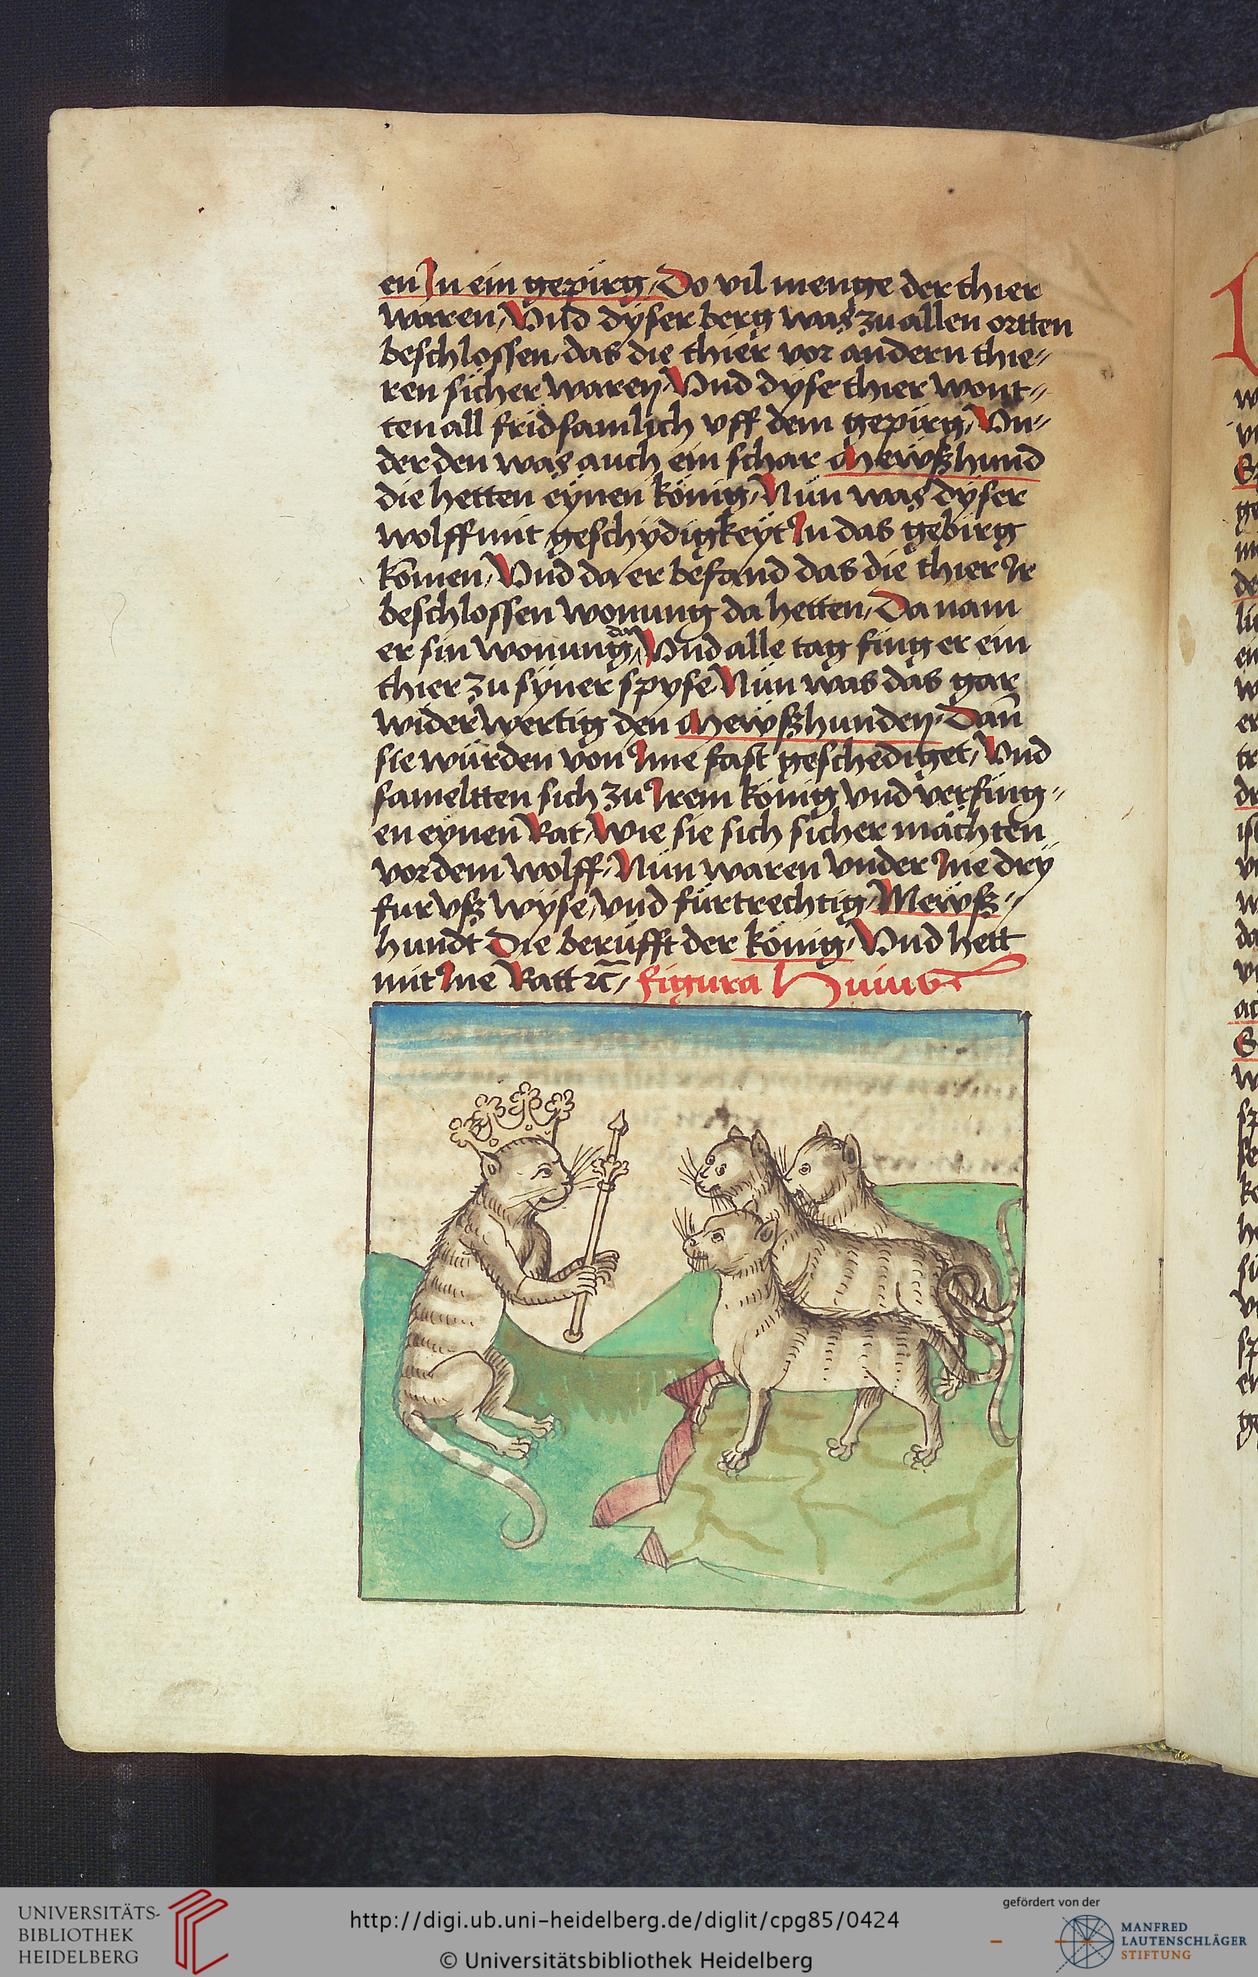 en In ein gepirg, Do vil menge der thier
waren, Vnd dyser berg was zu allen ortten
beschlossen, das die thier vor andern thie-
ren sicher waren, Vnd dyse thier wont-
ten all fridsamlich vff dem gepirg, Vn-
der den was auch ein schar Mewßhund
die hetten eynen könig, Nün was dyser
wolff mit geschydigkeyt In das gebirg
komen, Vnd da er befand das die thier Ir
beschlossen wonung da hetten, Da nam
er sin wonung dar, Vnd alle tag fing er ein
thier zu syner spyse, Nün was das gar
wider wertig den Mewßhunden, Dan̄
sie würden von Ime fast geschediget, Vnd
sameltten sich zu Irem könig vnd verfüng-
en eynen Rat, wie sie sich sicher mächten
vor dem wolff, Nün waren vnder Ine dry
fur vß wyse, vnd fürtrechtig, Mewß-
hundt Die berüfft der könig, Vnd hett
mit Ine Ratt ꝛc̄, figura Huius
UNIVERSITÄTS-
BIBLIOTHEK
HEIDELBERG
http://digi.ub.uni-heidelberg.de/diglit/cpg85/0424
© Universitätsbibliothek Heidelberg
gefördert von der
MANFRED
LAUTENSCHLÄGER
STIFTUNG